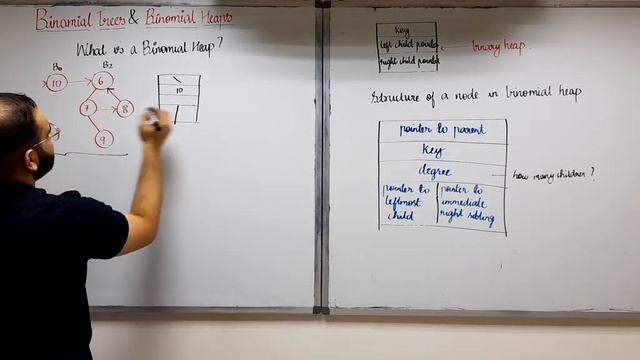 Binomial Trees & Binomial Heaps
What is a Binomial Heap?
B₀ B₂
10 6
7 8
9
10
key
left child pointer
right child pointer
binary heap
Structure of a node in binomial heap
pointer to parent
key
degree
how many children?
pointer to leftmost child
pointer to immediate right sibling